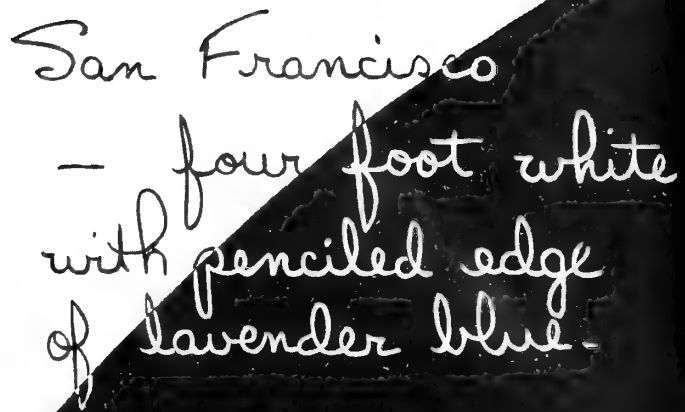 San Francisco
– four foot white
with penciled edge
of lavender blue.